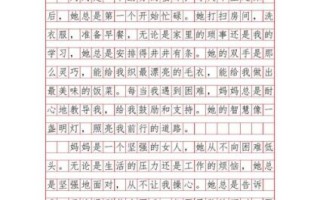 后，她总是第一个开始忙碌。她打扫房间，洗
衣服，准备早餐，无论是家里的琐事还是我的
学习，她总是安排得井井有条。她的双手是那
么灵巧，能给我织最漂亮的毛衣，能给我做出
最美味的饭菜。每当我遇到困难，妈妈总是耐
心地教导我，给我鼓励和支持。她的智慧像一
盏明灯，照亮我前行的道路。
妈妈是一个坚强的女人，她从不向困难低
头。无论是生活的压力还是工作的烦恼，她总
是坚强地面对，从不让我操心。她总是告诉